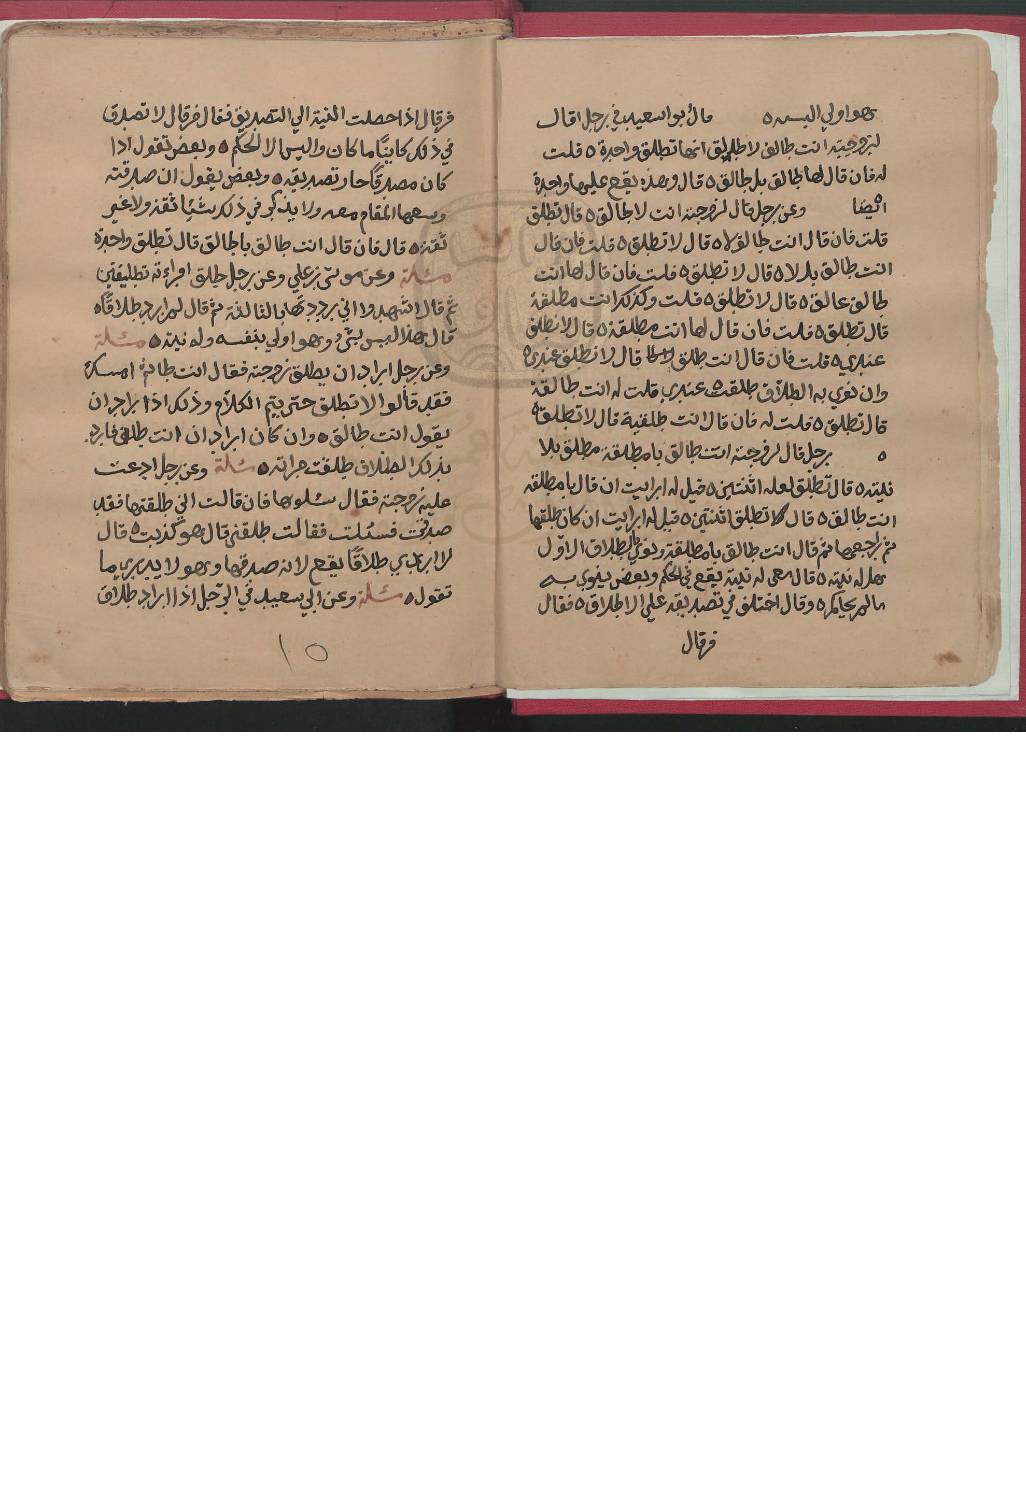 هو اولي البسه ه قال بو اسعيد في رجل قال
لزوجته انت طالق لا طليق انها تطلق واحدة ه قلت
له فان قال لها طالق بل طالق ه قال وهذه يقع عليها واحدة
ايضا وعن رجل قال لزوجته انت لا طالق ه قال تطلق
قلت فان قال انت طالق لا ه قال لا تطلق ه قلت فان قال
انت طالق بلا ه قال لا تطلق ه قلت فان قال لها انت
طالق عالق ه قال لا تطلق ه قلت وكذلك انت مطلقة
قال تطلق ه قلت فان قال لها انت مطلقة ه قال لا تطلق
عندي ه قلت فان قال انت طلق قال لا تطلق عندي ه
وان نوي به الطلاق طلقت ه عندي قلت له انت طالقة
قال تطلق ه قلت له فان قال انت طلقية قال لا تطلق ه
ه رجل قال لزوجته انت طالق يا مطلقة مطلق بلا
نيته ه قال تطلق لعله اثنتين ه قيل له ارايت ان قال يا مطلقه
انت طالق ه قال لا تطلق اثنتين ه قيل له ارايت ان كان طلقها
ثم راجعها ثم قال انت طالق يا مطلقة ونوي بالطلاق الاول
هل له نيته ه قال معي له نيته يقع في الحكم وبعض ينوي به
ما لم يحاكم ه وقال اختلق في تصديقه علي الاطلاق ه فقال
فرقال
فرقال اذا حصلت النية الي التصديق فقال فرقال لا تصدق
في ذلك كاينا ما كان وليس الا الحكم ه وبعض تقول اذا
كان مصدقا جاز تصديقه ه وبعض يقول ان صدقته
وسعها المقام معه ولا يذكر في ذلك شيئا ثقة ولا غير
ثقة ه قال فان قال انت طالق يا طالق قال تطلق واحدة
مسئلة وعن موسي بن علي وعن رجل طلق امراءته تطليقتين
ثم قال اشهدوا اني رددتها بالثالثة ثم قال لم ارد طلاقا ه
قال هذا ليس بشيء وهو اولي بنفسه وله نيته ه مسئلة
وعن رجل اراد ان يطلق زوجته فقال انت طا ثم امسك
فقد قالوا لا تطلق حتى يتم الكلام وذلك اذا اراد ان
يقول انت طالق ه وان كان اراد ان انت طلق فارد
بذلك الطلاق طلقت مراته ه مسئلة وعن رجل ادعت
عليه زوجته فقال سلوها فان قالت اني طلقتها فقد
صدقت فسئلت فقالت طلقني قال هو كذبت ه قال
لا ار عندي طلاقا يقع لانه صدقها وهو لا يدري ما
تقول ه مسئلة وعن ابي سعيد في الرجل اذا اراد طلاق
١٥